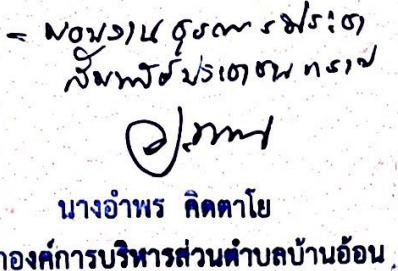 - มอบงานธุรการประชา
สัมพันธ์ประชาชนทราบ
นางอำพร คิดตาโย
องค์การบริหารส่วนตำบลบ้านอ้อน